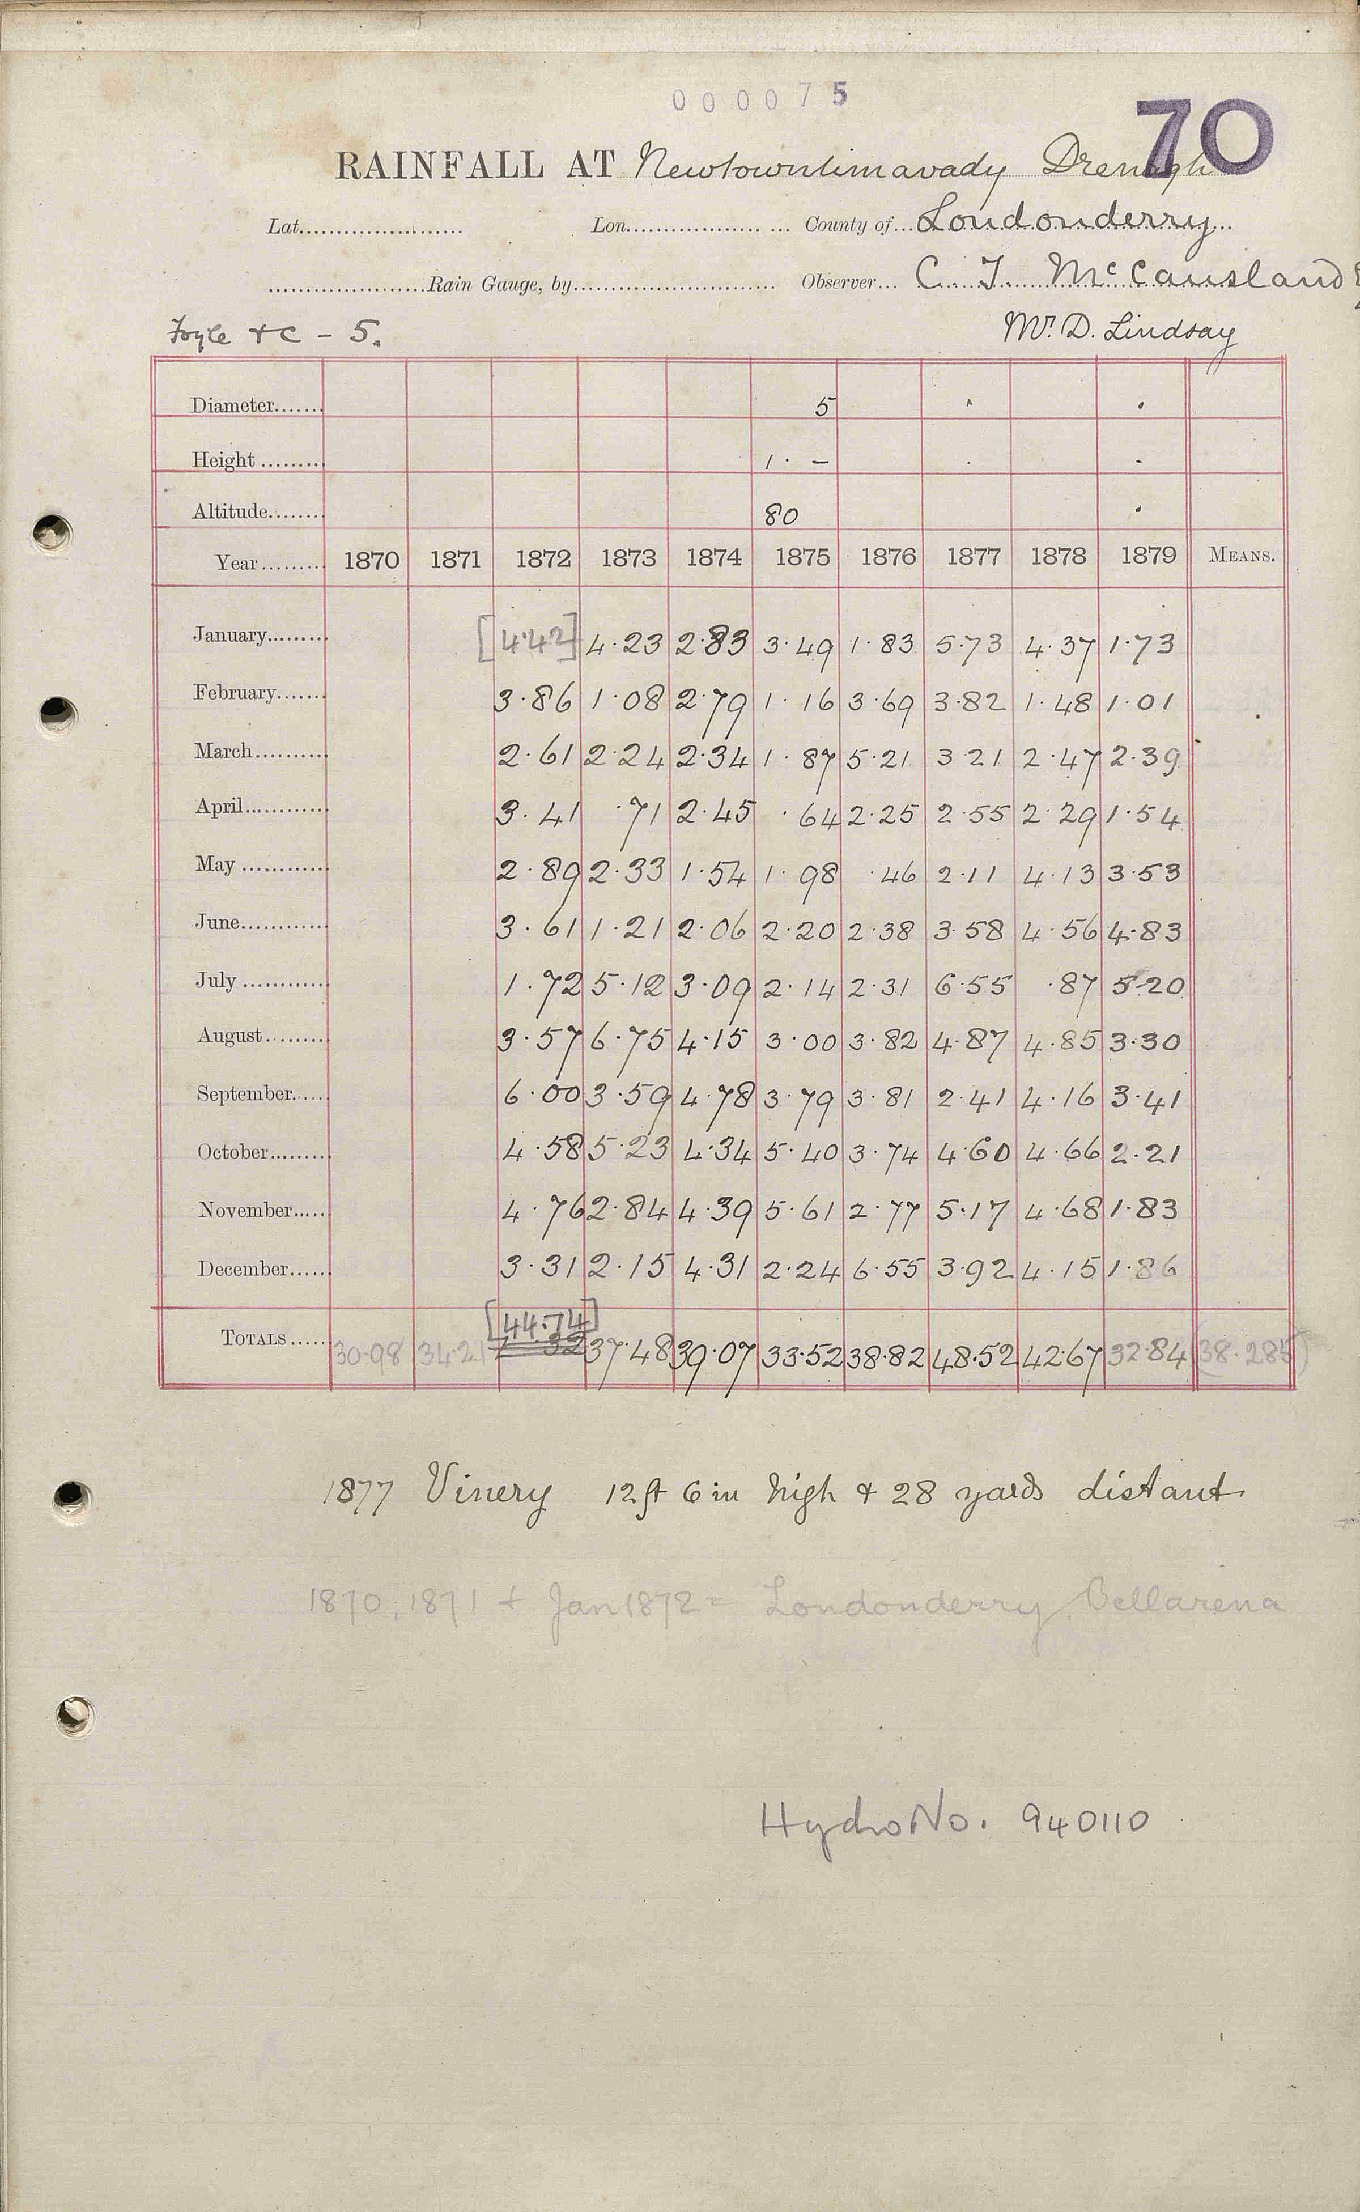 000075
70
RAINFALL AT Newtownlimavady Drenagh
Lat. Lon. County of Londonderry
Rain Gauge, by Observer C. T. McCausland
Foyle &c - 5. Mr. D. Lindsay
Diameter 5
Height 1 · –
Altitude 80
Year 1870 1871 1872 1873 1874 1875 1876 1877 1878 1879 MEANS.
January [4.42] 4.23 2.83 3.49 1.83 5.73 4.37 1.73
February 3.86 1.08 2.79 1.16 3.69 3.82 1.48 1.01
March 2.61 2.24 2.34 1.87 5.21 3.21 2.47 2.39
April 3.41 .71 2.45 .64 2.25 2.55 2.29 1.54
May 2.89 2.33 1.54 1.98 .46 2.11 4.13 3.53
June 3.61 1.21 2.06 2.20 2.38 3.58 4.56 4.83
July 1.72 5.12 3.09 2.14 2.31 6.55 .87 5.20
August 3.57 6.75 4.15 3.00 3.82 4.87 4.85 3.30
September 6.00 3.59 4.78 3.79 3.81 2.41 4.16 3.41
October 4.58 5.23 4.34 5.40 3.74 4.60 4.66 2.21
November 4.76 2.84 4.39 5.61 2.77 5.17 4.68 1.83
December 3.31 2.15 4.31 2.24 6.55 3.92 4.15 1.86
[44.74]
TOTALS 30.98 34.21 37.48 39.07 33.52 38.82 48.52 42.67 32.84 (38.285)
1877 Vinery 12ft 6in high & 28 yards distant
1870, 1871 + Jan 1872 = Londonderry, Bellarena
Hydro No. 940110